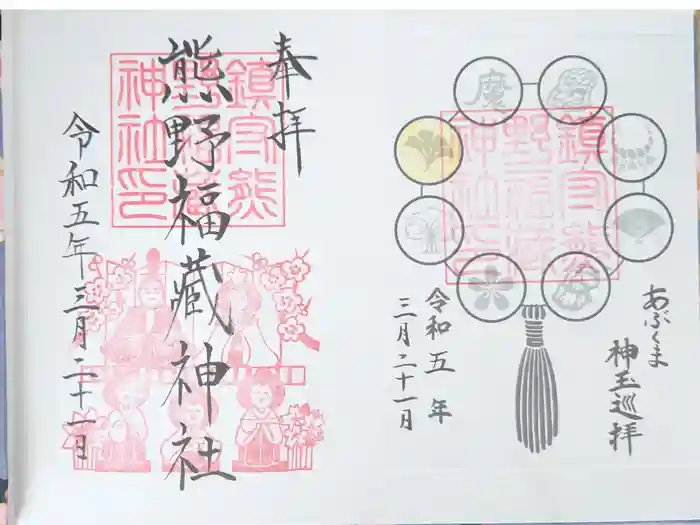 奉拝
熊野福藏神社
令和五年三月二十一日
鎮守熊
野福藏
神社印
あぶくま
神玉巡拝
令和五年
三月二十一日
鎮守熊
野福藏
神社印
慶